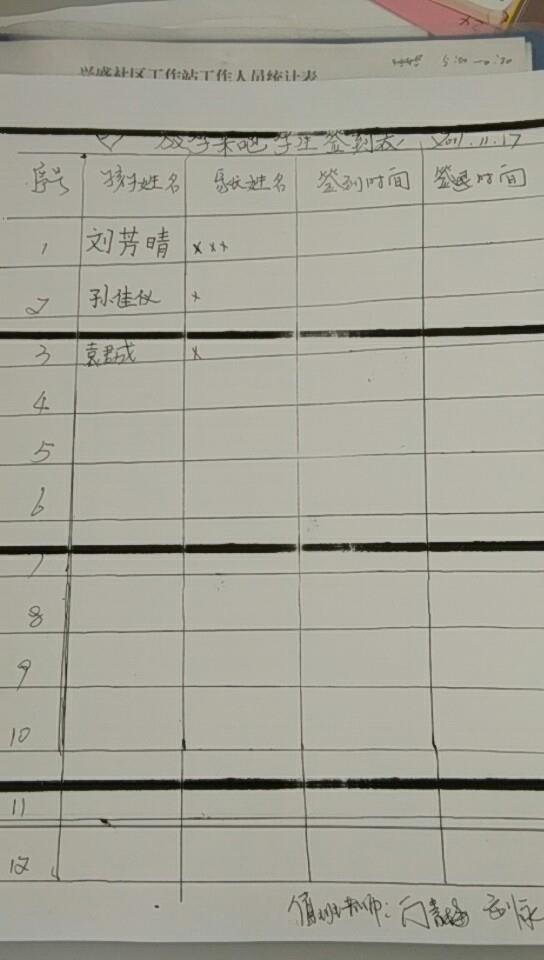 兴盛社区工作站工作人员统计表
放学来吧学生签到表 2011.11.17
序号 孩子姓名 家长姓名 签到时间 签退时间
1 刘芳晴 xxx
2 孙佳仪 x
3 袁君成 x
4
5
6
7
8
9
10
11
12
值班老师: